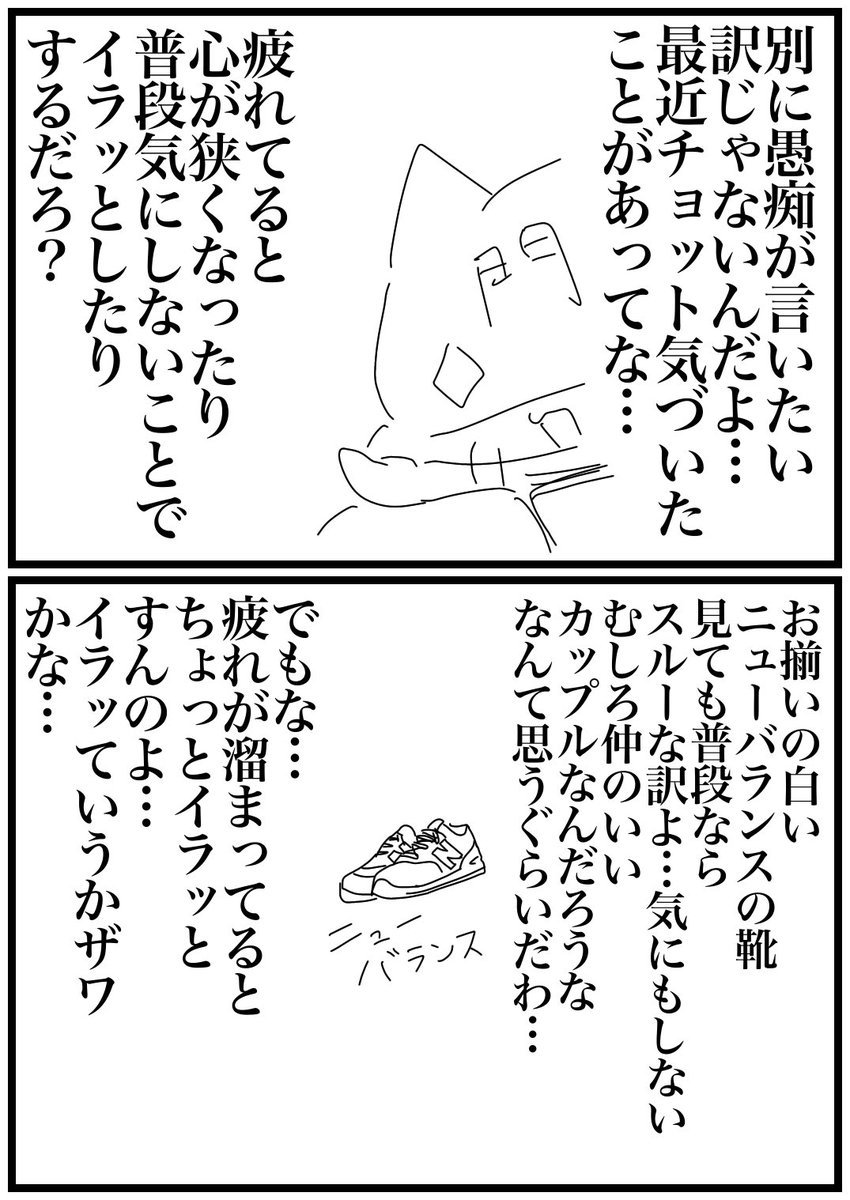 別に愚痴が言いたい
訳じゃないんだよ…
最近チョット気づいた
ことがあってな…
疲れてると
心が狭くなったり
普段気にしないことで
イラッとしたり
するだろ？
お揃いの白い
ニューバランスの靴
見ても普段なら
スルーな訳よ…気にもしない
むしろ仲のいい
カップルなんだろうな
なんて思うぐらいだわ…
N
ニュー
バランス
でもな…
疲れが溜まってると
ちょっとイラッと
すんのよ…
イラッていうかザワ
かな…